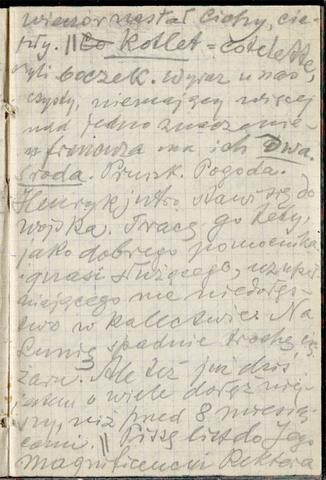 wieczór nastał cichy, cie-
pły. || Co Kotlet = côtelette,
czyli boczek. Wyraz u nas
czysty, niemający więcej
nad jedno znaczenie
francuza ma ich Dwa.
Środa. Prusk. Pogoda.
Henryk jutro stawi się do
wojska. Tracę go żeby,
jako dobrego pomocnika
quasi służącego, uzupeł-
niającego me niedołęs-
two w kalectwie. Na
Lunię spadnie trochę cię-
żaru. Ale też już dziś
jestem o wiele
szy, niż przed 8 miesią-
cami. || Piszę list do Jego
Magnificencji Rektora